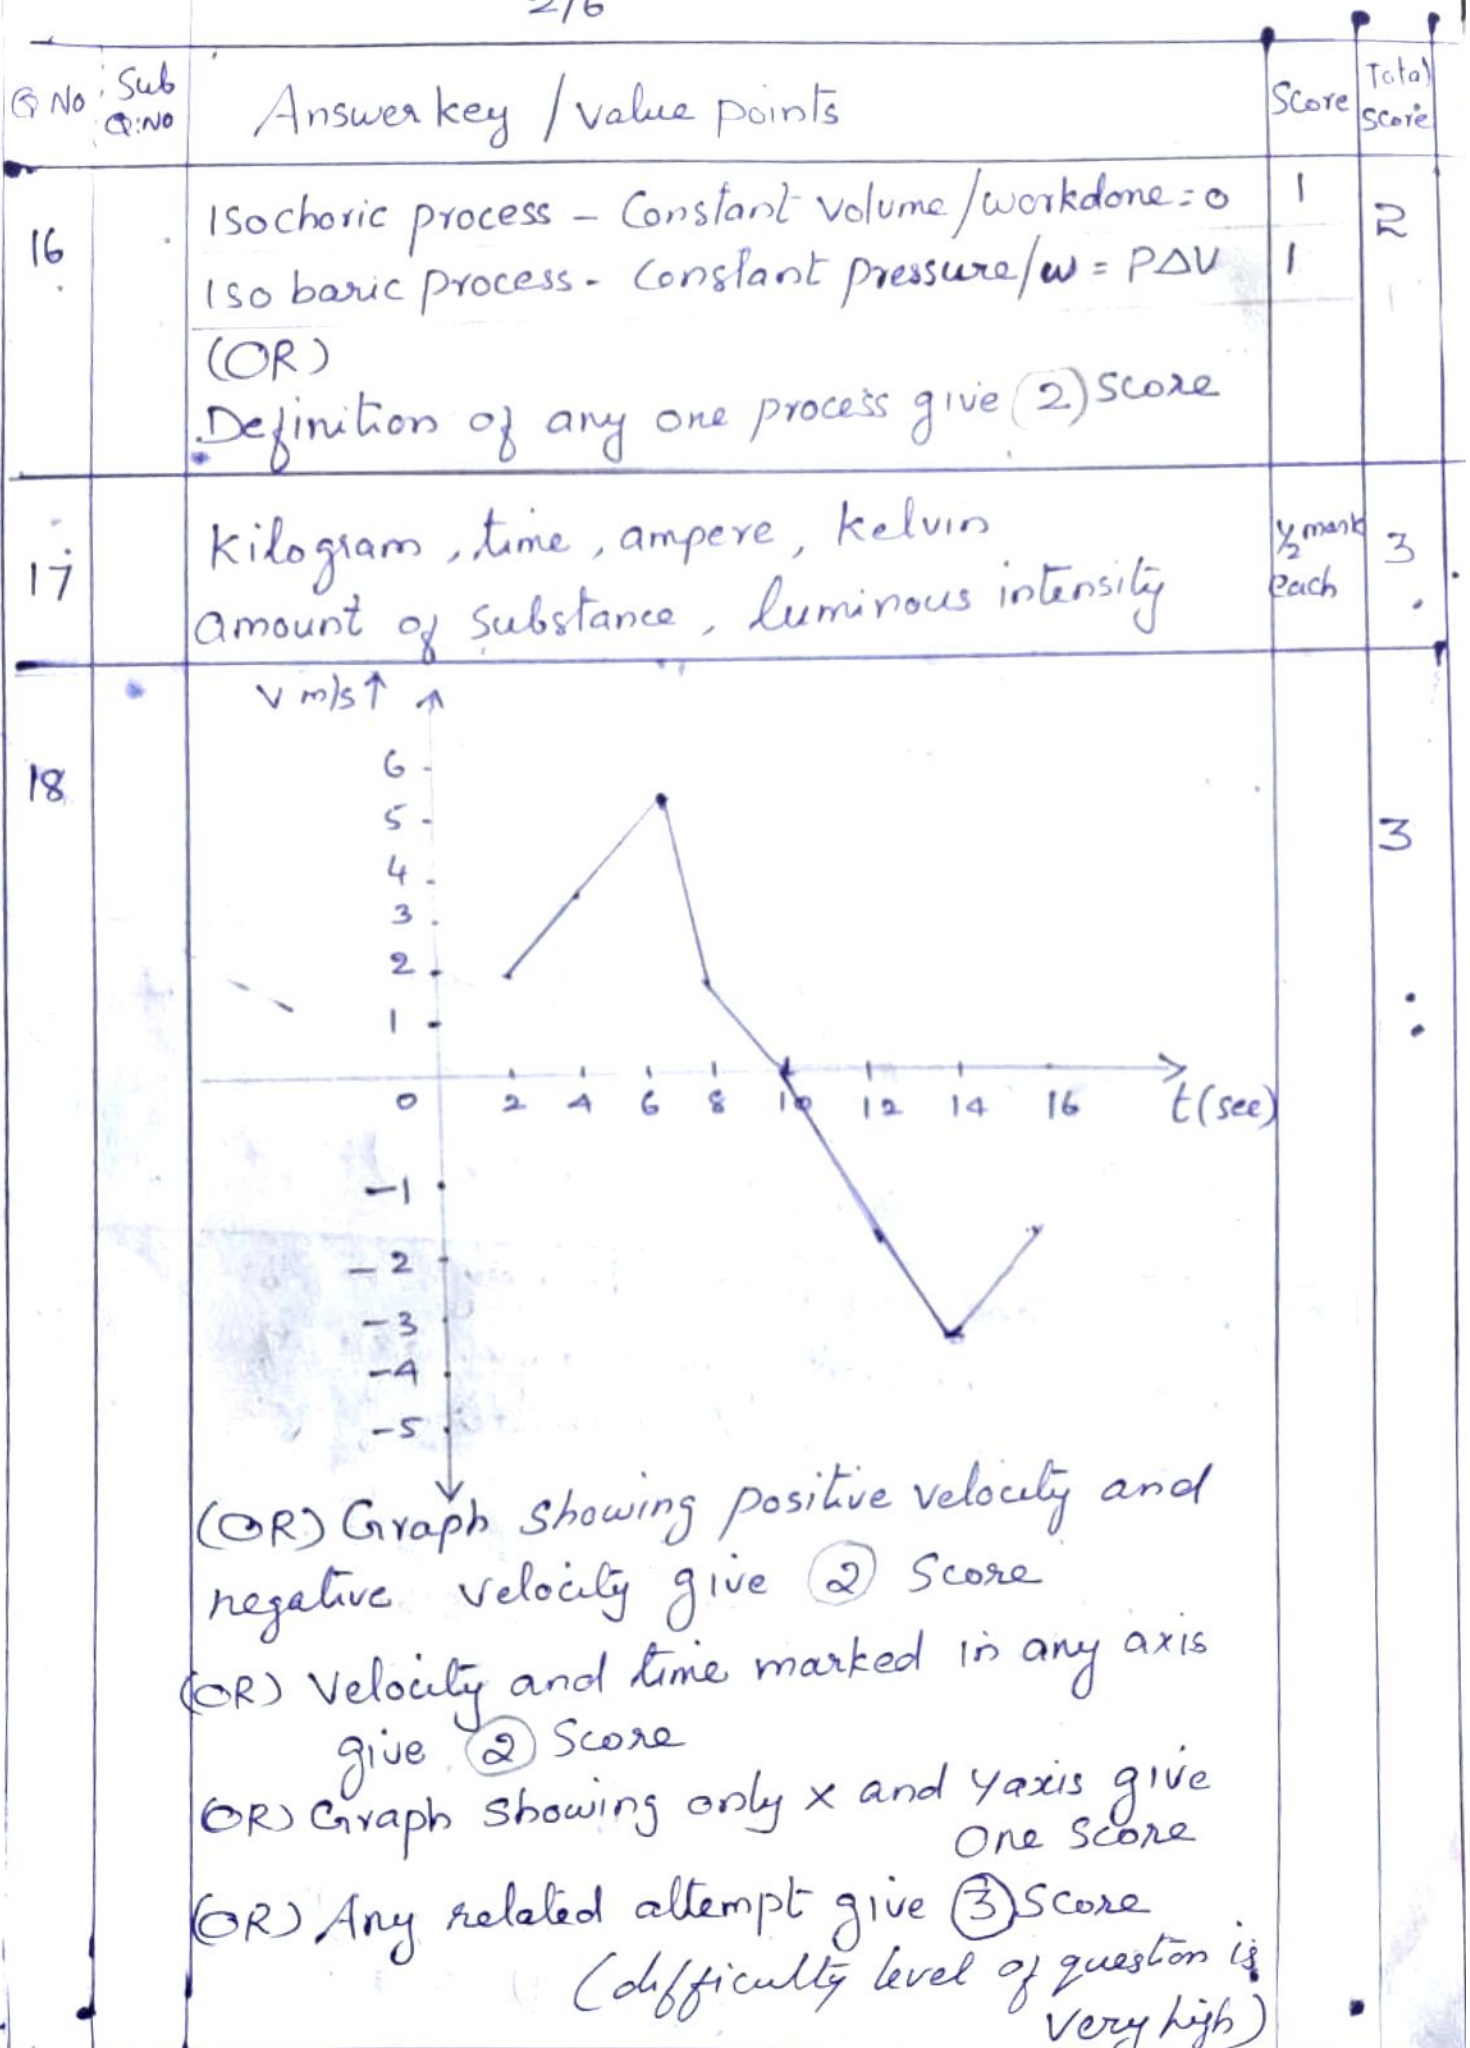 2/6
Q No Sub Q:No Answer key / value points Score Total Score
16 Isochoric process - Constant volume/workdone = 0 1 2
Iso baric process - Constant pressure/w = PΔV 1
(OR)
Definition of any one process give 2 Score
17 kilogram, time, ampere, kelvin ½ mark each 3
amount of substance, luminous intensity
18 V m/s ↑ 3
6
5
4
3
2
1
0 2 4 6 8 10 12 14 16 t(sec)
-1
-2
-3
-4
-5
(OR) Graph showing positive velocity and
negative velocity give 2 Score
(OR) Velocity and time marked in any axis
give 2 Score
(OR) Graph showing only x and y axis give
One Score
(OR) Any related attempt give 3 Score
(difficulty level of question is
very high)